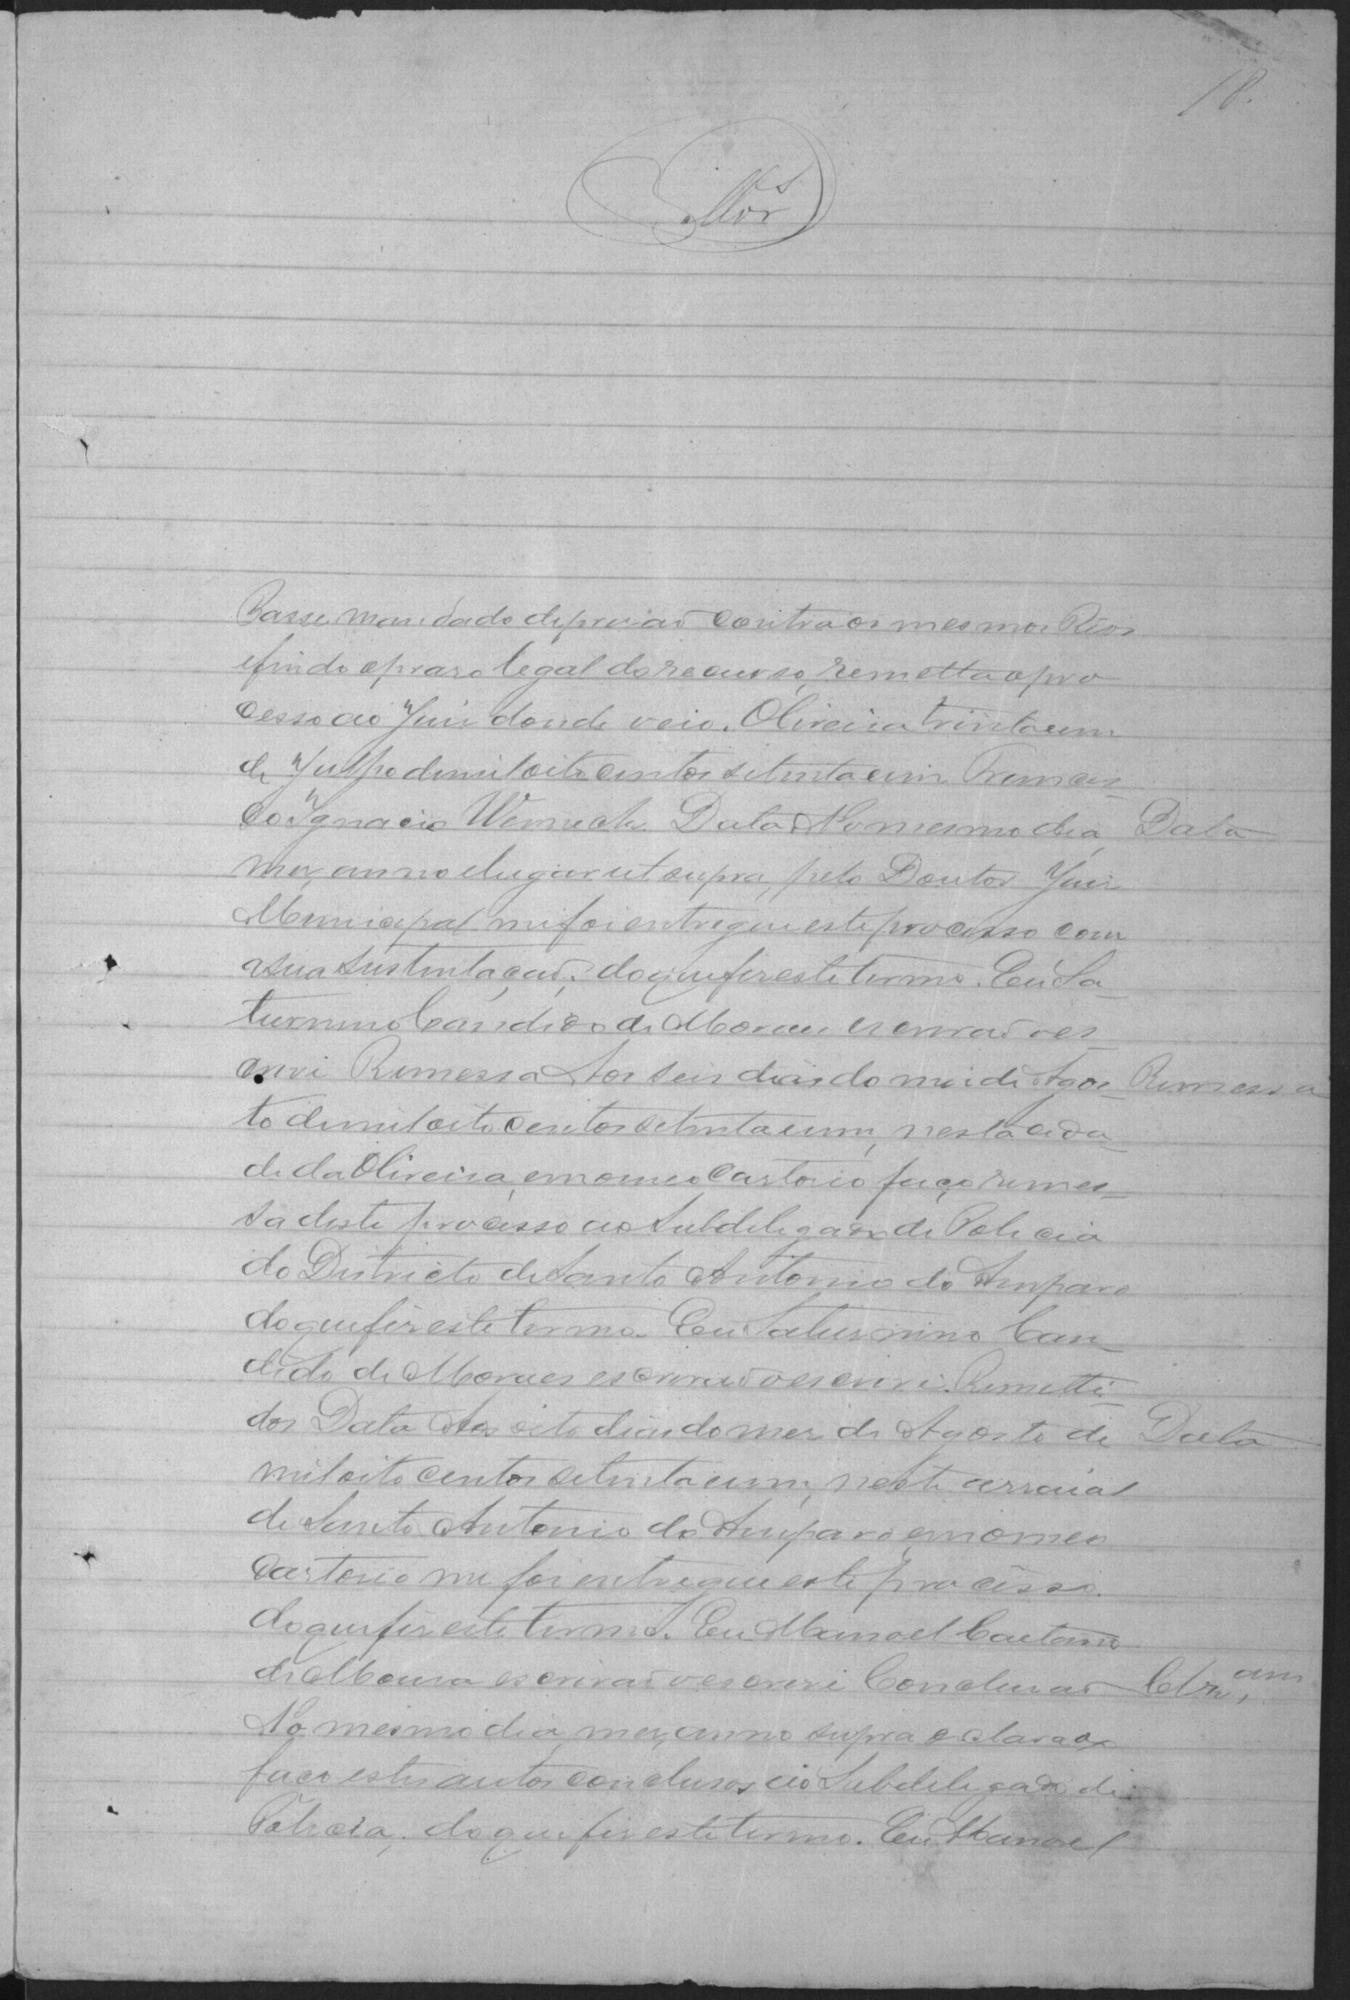 18.
Passe mandado de prisaõ contra os mesmos Réos
e findo o praso legal do recurso, remetta o pro
cesso ao Juis donde veio. Oliveira trinta e um
de Julho de mil oito centos setenta e um Francis_
co Ignacio Werneck Data No mesmo dia, Data
mez, anno e lugar ut supra, pelo Doutor Juis
Municipal me foi entregue este processo com
a sua sustentaçaõ; do que fis este termo. Eu Sa_
turnino Candido de Moraes escrivaõ o es_
crevi Remessa Aos seis dias do mes de Agos_ Remessa
to de mil oito centos setenta e um, nesta cida_
de da Oliveira, em o meo Cartorio faço remes_
sa deste processo ao Subdelegado de Policia
do Districto de Santo Antonio do Amparo
do que fis este termo. Eu Saturnino Can_
dido de Moraes escrivaõ o escrevi. Remetti_
dos Data Aos oito dias do mez de Agosto de Data
mil oito centos setenta e um, neste arraial
de Santo Antonio do Amparo, em o meo
Cartorio me foi entregue este processo.
do que fis este termo. Eu Manoel Caetano
de Moura escrivaõ o escrevi Conclusaõ Clzam
No mesmo dia, mez, anno supra e declarado
faço estes autos conclusos ao Subdelegado de
Policia, do que fis este termo. Eu Manoel